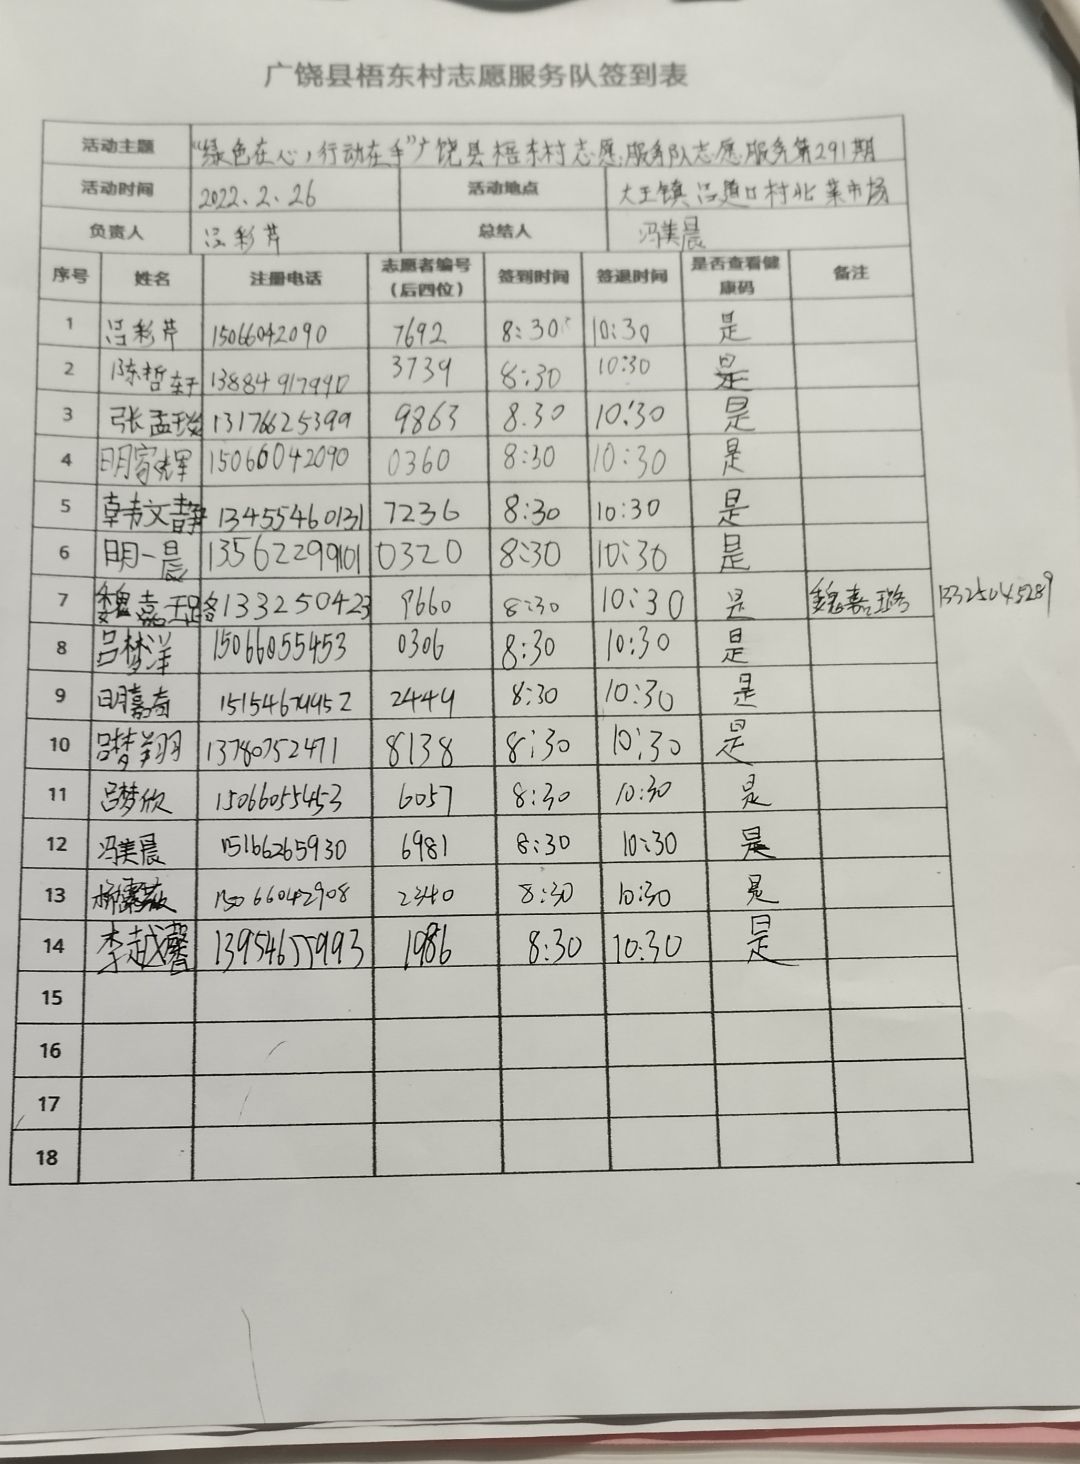 广饶县梧东村志愿服务队签到表
活动主题 "绿色在心，行动在手"广饶县梧东村志愿服务队志愿服务第291期
活动时间 2022.2.26 活动地点 大王镇吕道口村北菜市场
负责人 吕彩芹 总结人 冯美晨
序号 姓名 注册电话 志愿者编号（后四位） 签到时间 签退时间 是否查看健康码 备注
1 吕彩芹 15066042090 7692 8:30 10:30 是
2 陈哲轩 13884917990 3739 8:30 10:30 是
3 张孟琰 13176625399 9863 8.30 10:30 是
4 明家辉 15066042090 0360 8:30 10:30 是
5 韩文静 13455460131 7236 8:30 10:30 是
6 明一晨 13562299101 0320 8:30 10:30 是
7 魏嘉璐 133250423 9660 8:30 10:30 是 魏嘉璐 13325045289
8 吕梦洋 15066055453 0306 8:30 10:30 是
9 明嘉奇 2444 8:30 10:30 是
10 吕梦翔 13780752471 8138 8:30 10:30 是
11 吕梦欣 15066055453 6057 8:30 10:30 是
12 冯美晨 15166265930 6981 8:30 10:30 是
13 15066042908 2340 8:30 10:30 是
14 李越馨 13954655993 1986 8:30 10:30 是
15
16
17
18